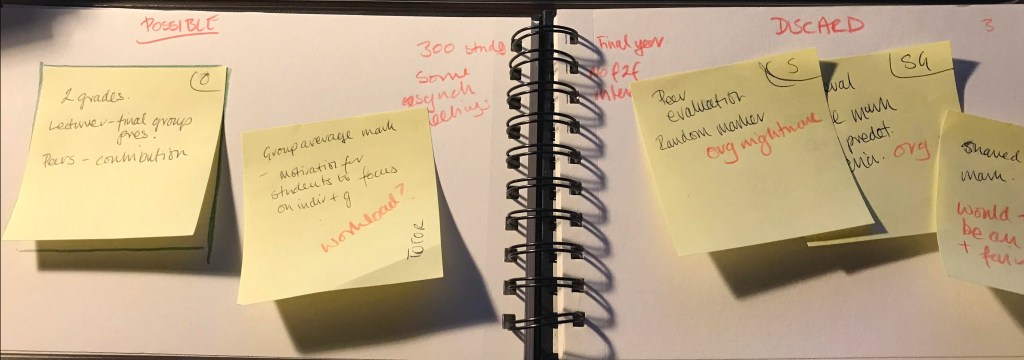 POSSIBLE
300 stude
Some
asynch
eetings
O
2 grades.
Lecturer - final group
pres.
Peers - contribution
Group average mark
- motivation for
students to focus
on indiv + g
workload?
TUTOR
DISCARD
3
Final year
no f2f
inter
S
Peer
evaluation
Random marker
org nightmare
SG
val
e mark
predet.
org
shared
mark.
would
be an
+ fair